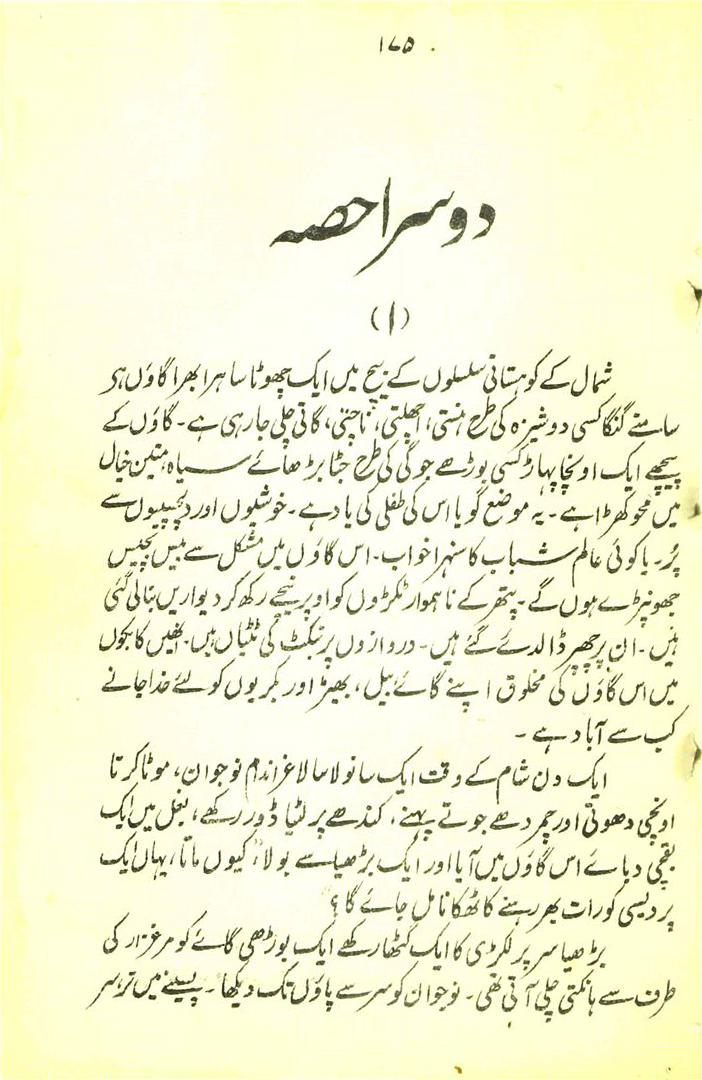 ۱۷۵
دوسرا حصہ
(۱)
شمال کے کوہستانی سلسلوں کے بیچ میں ایک چھوٹا سا ہرا بھرا گاؤں ہے
سامنے گنگا کسی دوشیزہ کی طرح ہنستی، اچھلتی، ناچتی، گاتی چلی جا رہی ہے۔ گاؤں کے
پیچھے ایک اونچا پہاڑ کسی بوڑھے جوگی کی طرح جٹا بڑھائے سیاہ، متین خیال
میں محو کھڑا ہے۔ یہ موضع گویا اس کی طفلی کی یاد ہے۔ خوشیوں اور دلچسپیوں سے
پُر۔ یا کوئی عالم شباب کا سنہرا خواب۔ اس گاؤں میں مشکل سے بیس پچیس
جھونپڑے ہوں گے۔ پتھر کے ناہموار ٹکڑوں کو اوپر نیچے رکھ کر دیواریں بنا لی گئی
ہیں۔ ان پر چھپر ڈالدئے گئے ہیں۔ دروازوں پر بنکٹ کی ٹٹیاں ہیں۔ انھیں کابکوں
میں اس گاؤں کی مخلوق اپنے گائے بیل، بھیڑ اور بکریوں کو لئے خدا جانے
کب سے آباد ہے۔
ایک دن شام کے وقت ایک سانولا سا لاغر اندام نوجوان، موٹا کرتا
اونچی دھوتی اور چمر دھے جوتے پہنے، کندھے پر لٹیا ڈور رکھے، بغل میں ایک
بقچی دبائے اس گاؤں میں آیا اور ایک بڑھیا سے بولا، "کیوں ماتا، یہاں ایک
پردیسی کو رات بھر رہنے کا ٹھکانا مل جائے گا؟"
بڑھیا سر پر لکڑی کا ایک گٹھا رکھے ایک بوڑھی گائے کو مرغزار کی
طرف سے ہانکتی چلی آتی تھی۔ نوجوان کو سر سے پاؤں تک دیکھا۔ پسینے میں تر، سر